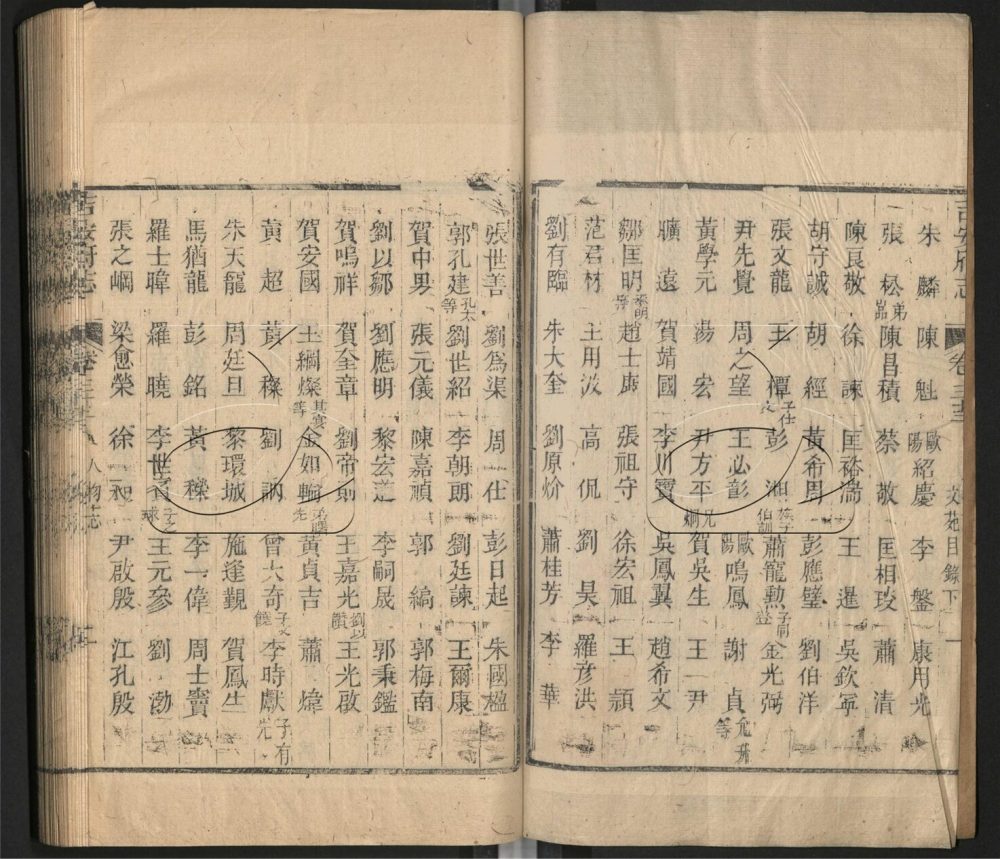 吉安府志 卷三三 文苑目錄下 一
朱麟 陳魁 歐陽紹慶 李盤 康用光
張松 弟 陳昌積 蔡敬 匡相 蕭清
陳良敬 徐諫 匡裕 王暹 吳欽寧
胡守誠 胡經 黃希周 彭應璧 劉伯洋
張文龍 王檟 子仕 彭湘 族子伯 蕭寵勲 金光弼
尹先覺 周之望 王必彰 歐陽鳴鳳 謝貞 等
黃學元 湯宏 尹方平 兄 賀吳生 王一尹
曠遠 賀靖國 李川寶 吳鳳翼 趙希文
鄒匡明 等 趙士 張祖守 徐宏祖 王頴
范君材 王用汲 高侃 劉昊 羅彥洪
劉有臨 朱大奎 劉原价 蕭桂芳 李華
張世善 劉為渠 周仕 彭日起 朱國楹
郭孔建 孔太等 劉世紹 李朝朗 劉廷諫 王爾康
賀中男 張元儀 陳嘉頑 郭編 郭梅南
劉以鄒 劉應明 黎宏道 李嗣晟 郭秉鑑
賀鳴祥 賀全章 劉帝則 王嘉光 劉以 王光啟
賀安國 王綱燦 其 等 金如 先 黃貞吉 蕭煒
黃超 黃燦 劉訥 曾大奇 子文 李時獻 子有先
朱天寵 周廷旦 黎環城 施逢觀 賀鳳生
馬猶龍 彭銘 黃 李一偉 周士賣
羅士暐 羅曉 李世 王元參 劉渤
張之綱 梁愈榮 徐昶 尹啟殷 江孔殷
吉安府志 卷三三 人物志